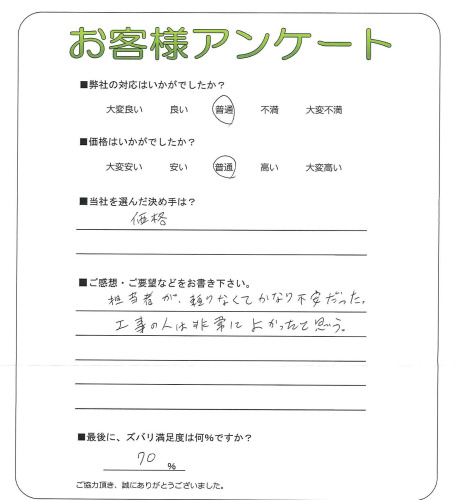 お客様アンケート
■弊社の対応はいかがでしたか？
大変良い 良い 普通 不満 大変不満
■価格はいかがでしたか？
大変安い 安い 普通 高い 大変高い
■当社を選んだ決め手は？
価格
■ご感想・ご要望などをお書き下さい。
担当者が、頼りなくてかなり不安だった。
工事の人は非常によかったと思う。
■最後に、ズバリ満足度は何%ですか？
70 %
ご協力頂き、誠にありがとうございました。